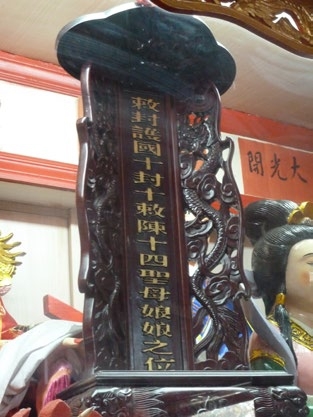 敕封護國十封十敕陳十四聖母娘娘之位
開光大